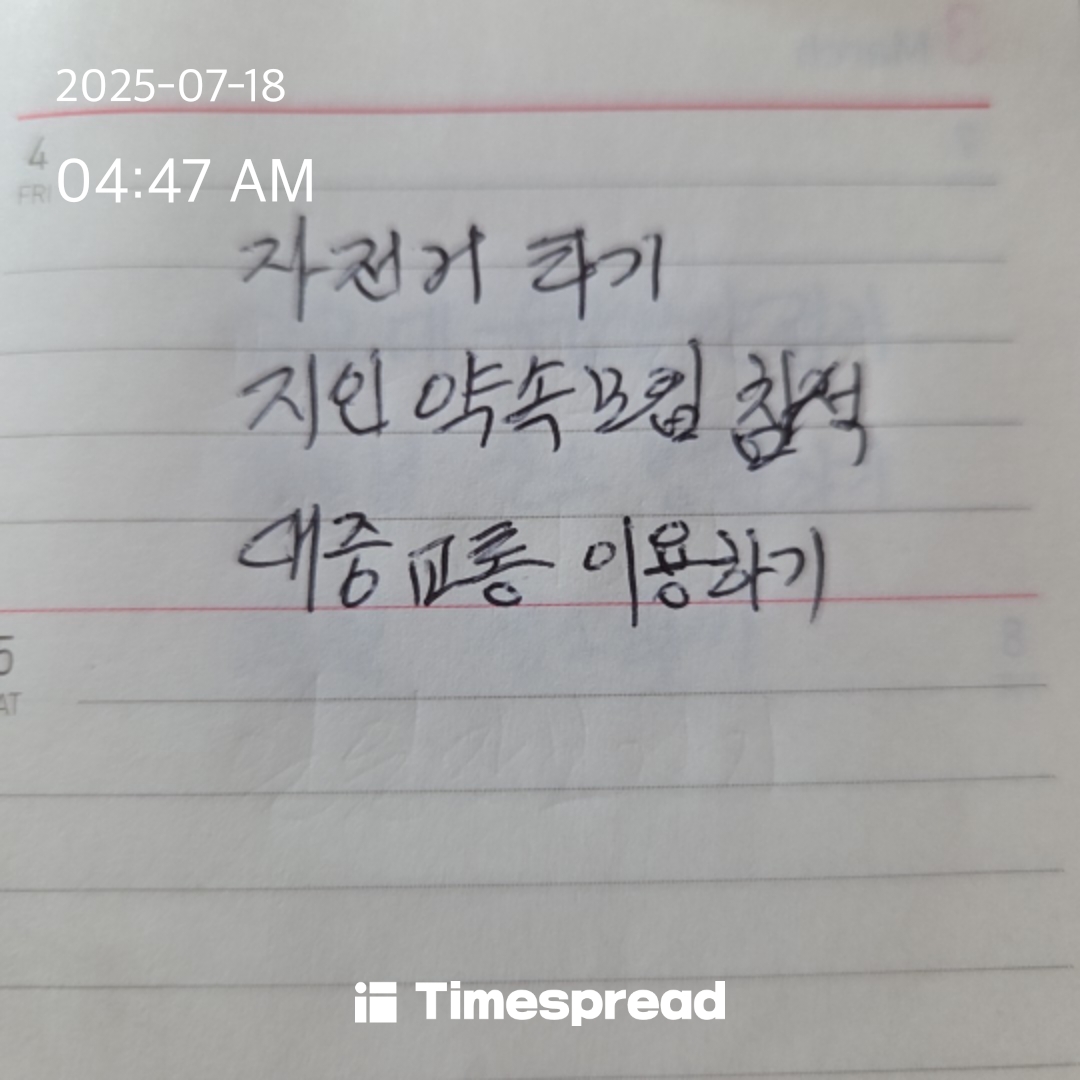 2025-07-18
4
04:47 AM
FRI
자전거 타기
지인 약속모임 참석
대중교통 이용하기
5
AT
Timespread